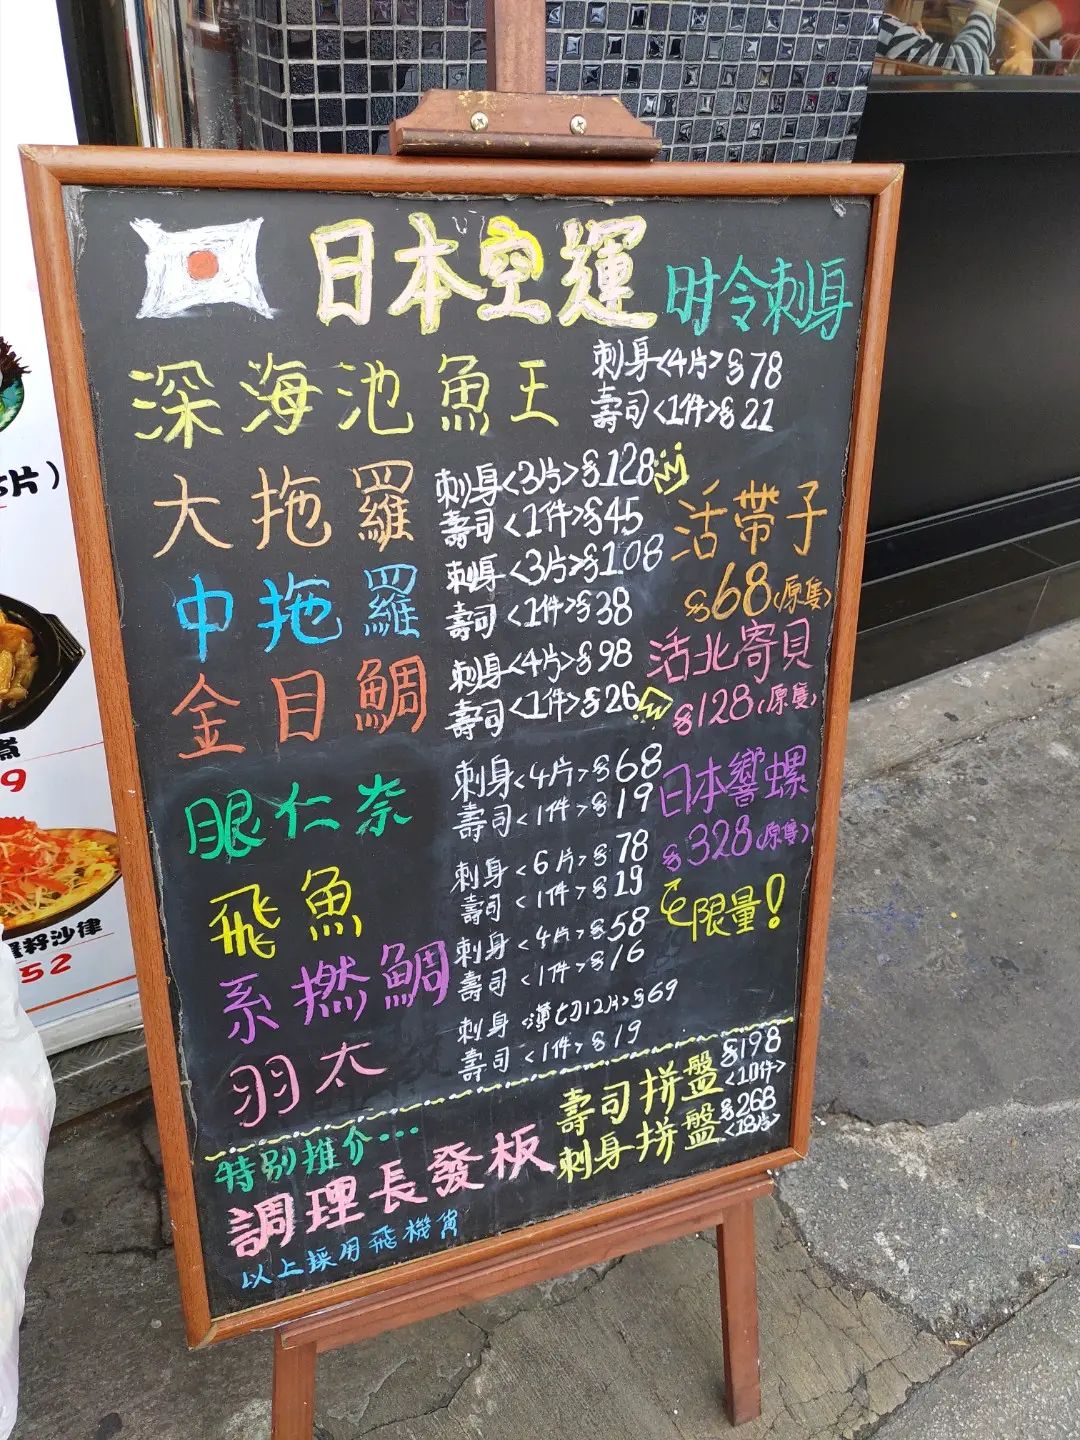 日本空運 时令刺身
深海池魚王 刺身<4片>$78
壽司<1件>$21
大拖羅 刺身<3片>$128
壽司<1件>$45
中拖羅 刺身<3片>$108
壽司<1件>$38
金目鯛 刺身<4片>$98
壽司<1件>$26
眼仁奈 刺身<4片>$68
壽司<1件>$19
飛魚 刺身<6片>$78
壽司<1件>$19
系撚鯛 刺身<4片>$58
壽司<1件>$16
羽太 刺身<薄切12片>$69
壽司<1件>$19
活帶子
$68(原隻)
活北寄貝
$128(原隻)
日本響螺
$328(原隻)
限量!
特别推介...
調理長發板
壽司拼盤 $198
<10件>
刺身拼盤 $268
<18片>
以上採用飛機貨
片)
煮
9
籽沙律
52